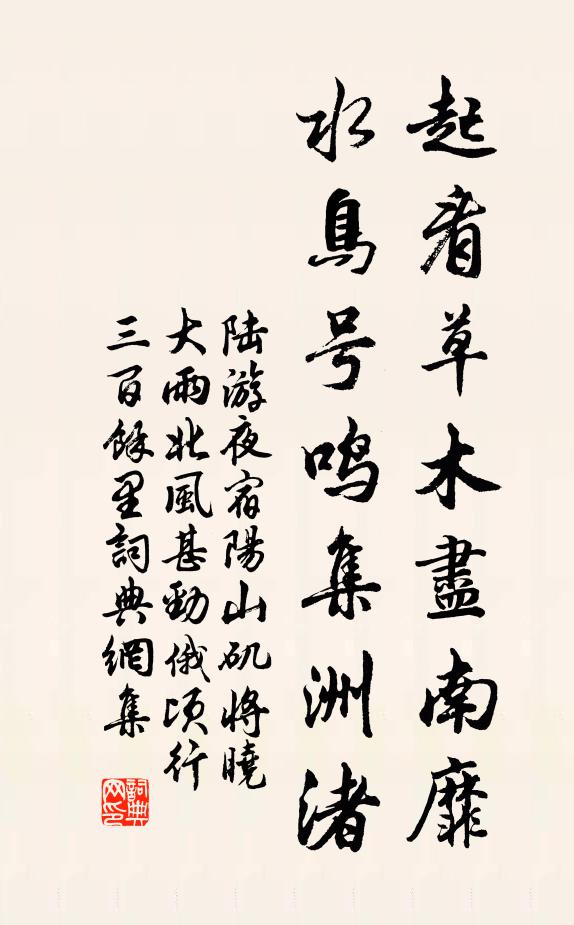 起看草木盡南靡
水鳥号鳴集洲渚
陆游夜宿陽山矶将曉
大雨北風甚勁俄頃行
三百餘里詞典網集
詞典网印